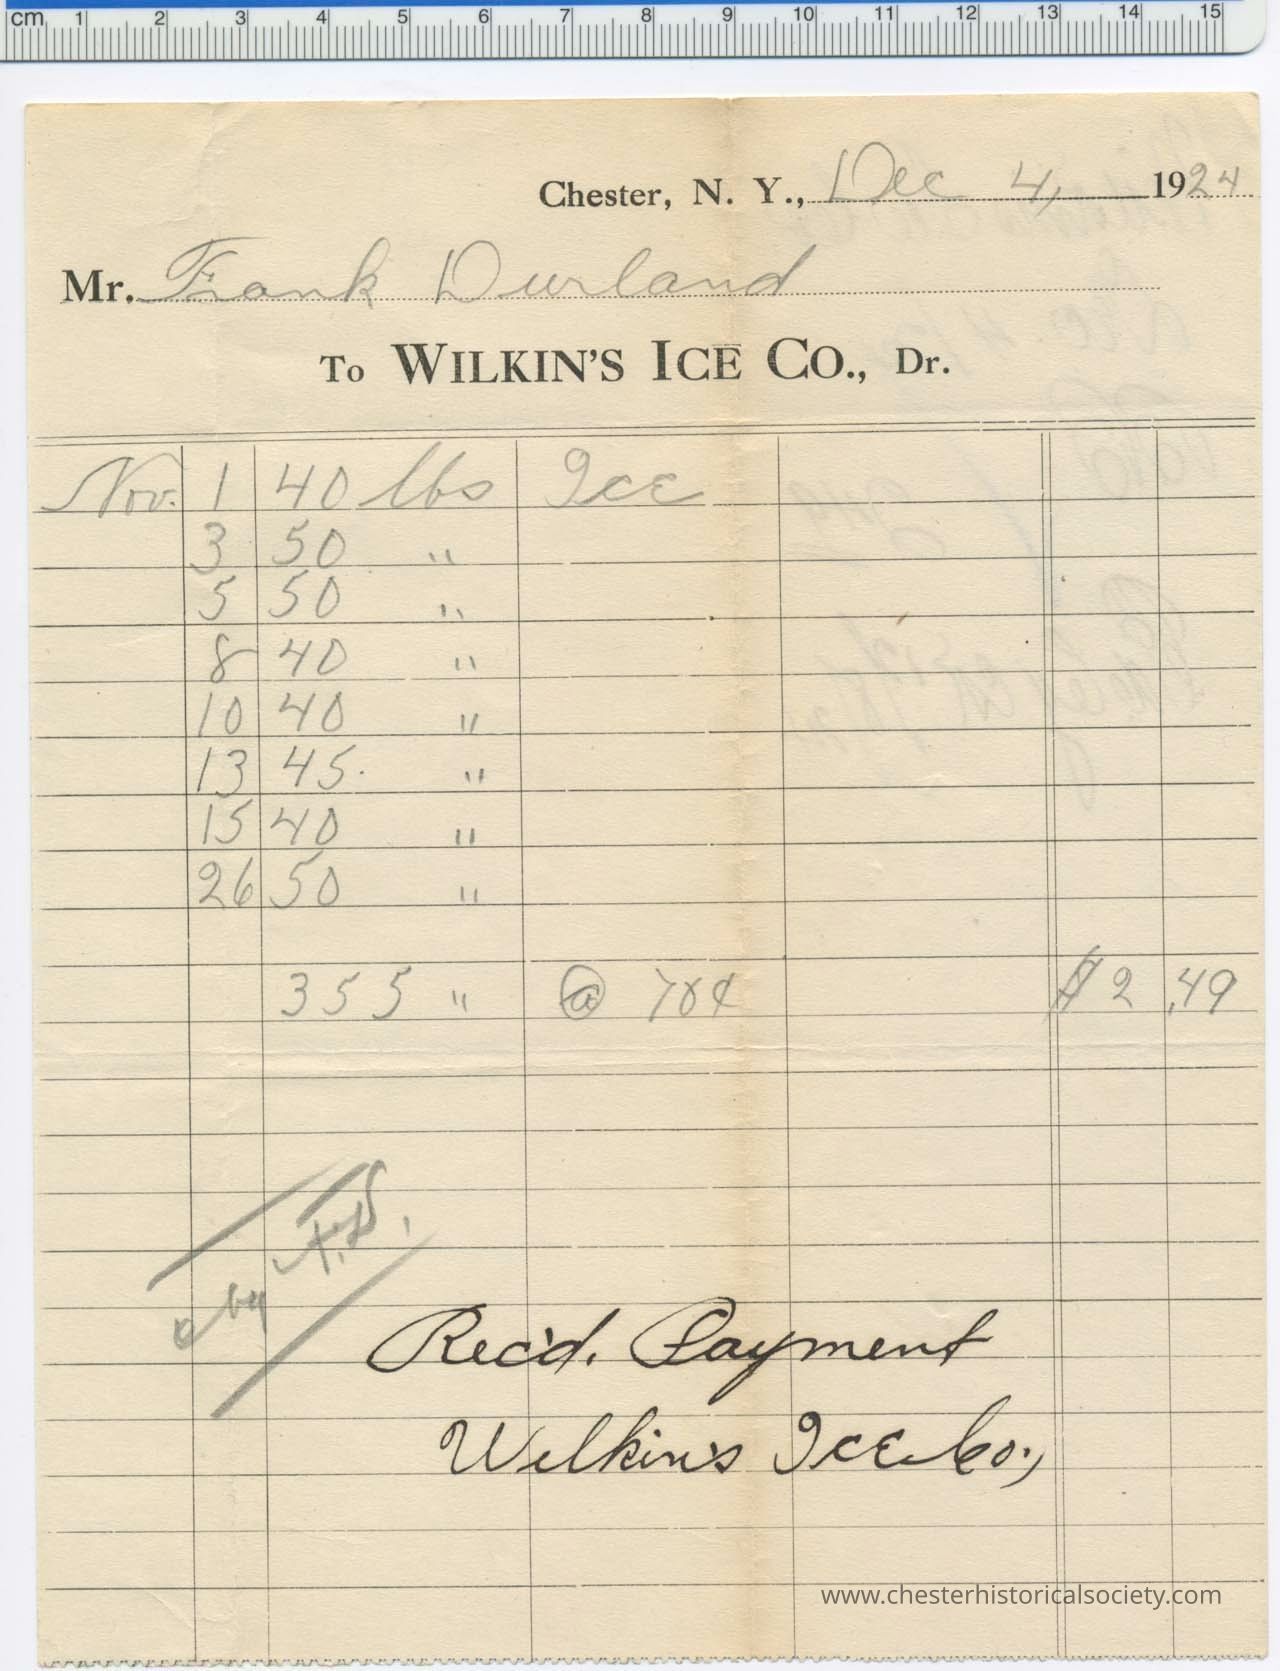 cm 1 2 3 4 5 6 7 8 9 10 11 12 13 14 15
Chester, N. Y., Dec 4, 1924
Mr. Frank Durland
To WILKIN'S ICE CO., Dr.
Nov. 1 40 lbs Ice
3 50 "
5 50 "
8 40 "
10 40 "
13 45. "
15 40 "
26 50 "
355 " @ 70¢ $2.49
by
Rec'd. Payment
Wilkin's Ice Co.,
www.chesterhistoricalsociety.com